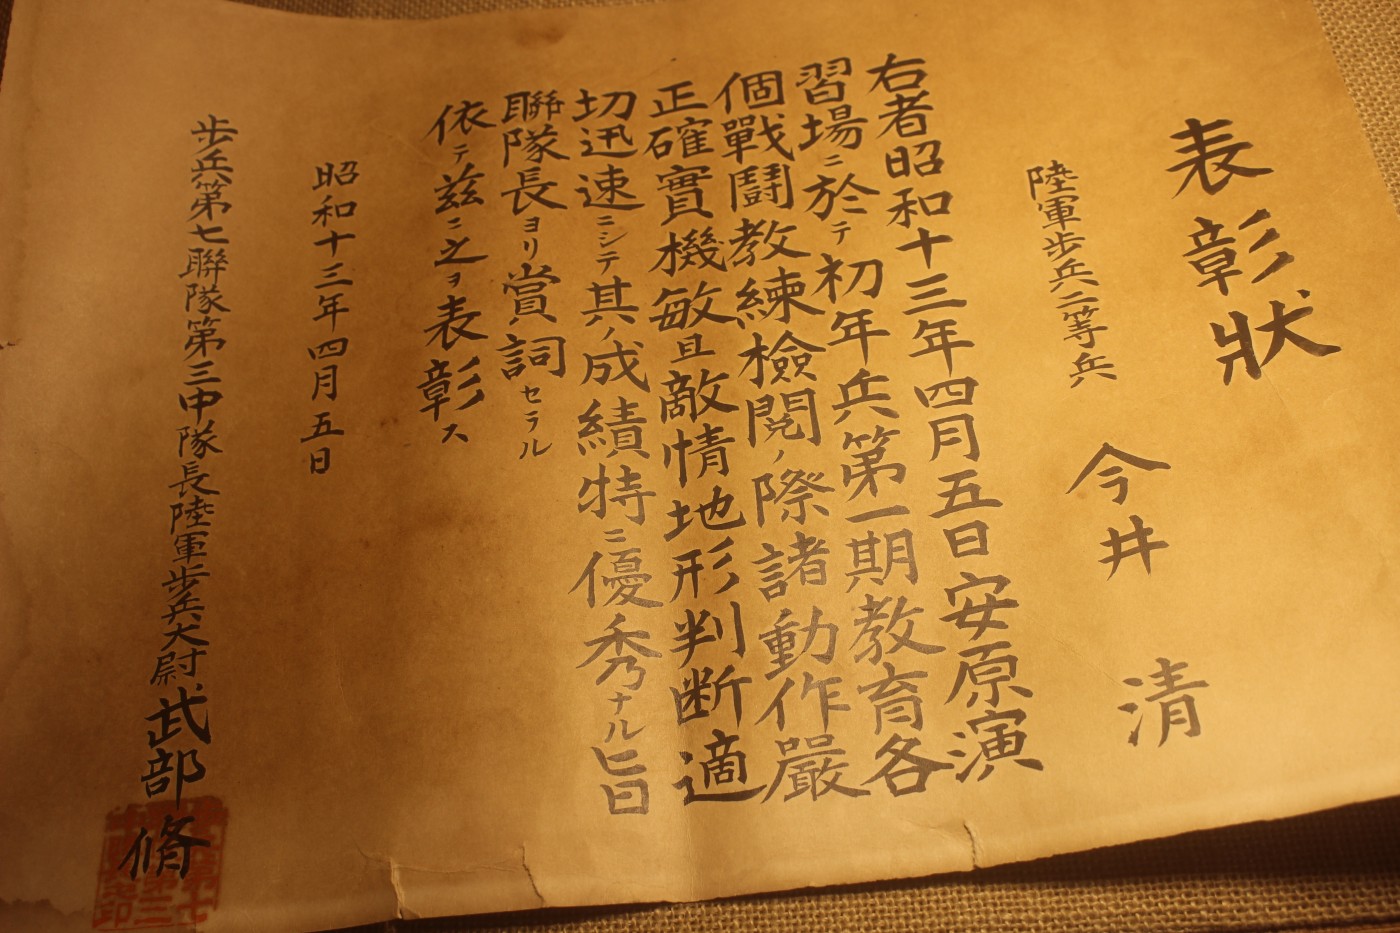 表彰狀
陸軍歩兵二等兵
今井 清
右者昭和十三年四月五日安原演
習場ニ於テ初年兵第一期教育各
個戰鬪教練檢閲ノ際諸動作嚴
正確實機敏且敵情地形判断適
切迅速ニシテ其ノ成績特ニ優秀ナル旨
聯隊長ヨリ賞詞セラル
依テ茲ニ之ヲ表彰ス
昭和十三年四月五日
歩兵第七聯隊第三中隊長陸軍歩兵大尉武部脩